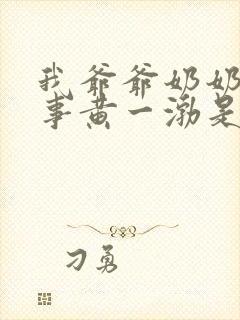 我爷爷奶奶
事黄一渤是
刁勇